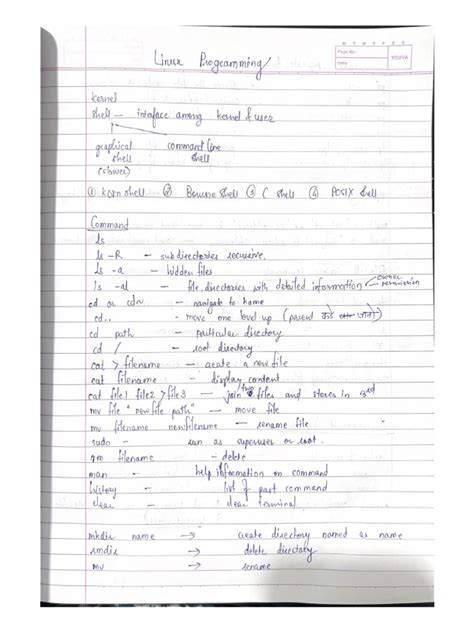 M T W T F S S
Page No.:
Date:
YOUVA
Linux Programming
Kernel
Shell — interface among kernel & user
graphical command line
shell shell
(slower)
① Korn shell ② Bourne shell ③ C shell ④ POSIX shell
Command
ls
ls -R — subdirectories recursive.
ls -a — hidden files
ls -al — file, directories with detailed information owner permission
cd or cd~ — navigate to home
cd.. — move one level up (parent जाना)
cd path — particular directory
cd / — root directory
cat > filename — create a new file
cat filename — display content
cat file1 file2 > file3 — join two files and stores in 3rd
mv file "new file path" — move file
mv filename newfilename — rename file
sudo - run as superuser or root.
rm filename - delete
man - help information on command
history - list of past command
clear - clear terminal
mkdir name → create directory named as name
rmdir → delete directory
mv → rename